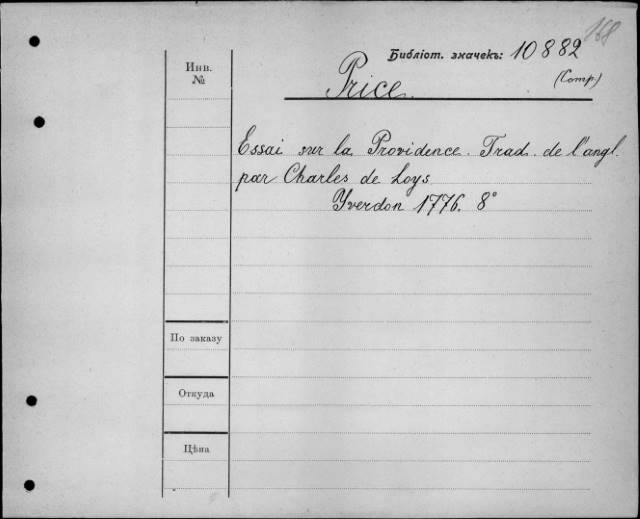 168
Библіот. значекъ: 10882
Инв. №
Price
(Comp)
Essai sur la Providence. Trad. de l'angl.
par Charles de Loys
Yverdon 1776. 8°
По заказу
Откуда
Цѣна